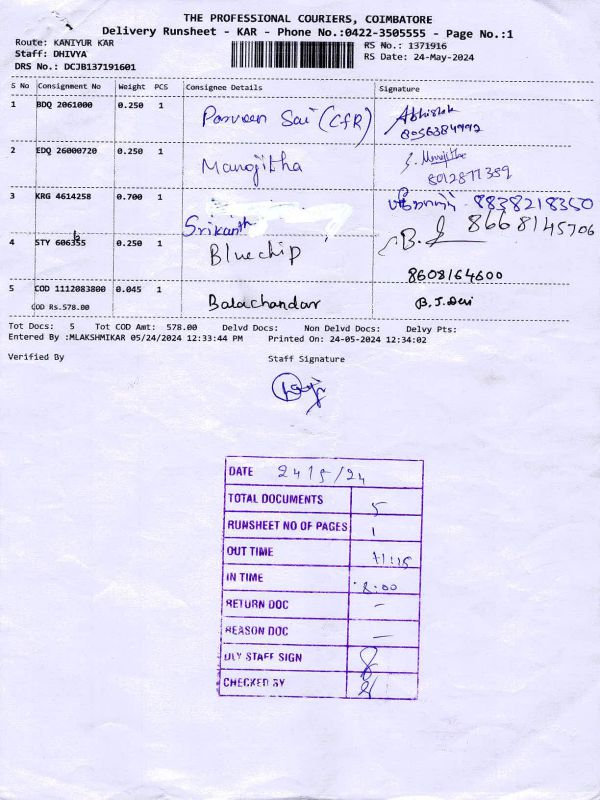 THE PROFESSIONAL COURIERS, COIMBATORE
Delivery Runsheet - KAR - Phone No.:0422-3505555 - Page No.:1
Route: KANIYUR KAR
Staff: DHIVYA
DRS No.: DCJB137191601
RS No.: 1371916
RS Date: 24-May-2024
S No Consignment No Weight PCS Consignee Details Signature
1 BDQ 2061000 0.250 1 Parveen Sai (CfR) Abhishek
8056384992
2 EDQ 26000720 0.250 1 Manojitha
8012877359
3 KRG 4614258 0.700 1 Srikanth 8838218350
8668145706
4 STY 606355 0.250 1 Bluechip
8608164600
5 COD 1112083800 0.045 1 Balachandar B.J.Devi
COD Rs.578.00
Tot Docs: 5 Tot COD Amt: 578.00 Delvd Docs: Non Delvd Docs: Delvy Pts:
Entered By :MLAKSHMIKAR 05/24/2024 12:33:44 PM Printed On: 24-05-2024 12:34:02
Verified By Staff Signature
DATE 24/5/24
TOTAL DOCUMENTS 5
RUNSHEET NO OF PAGES 1
OUT TIME 11:15
IN TIME 8:00
RETURN DOC -
REASON DOC -
DLY STAFF SIGN
CHECKED BY